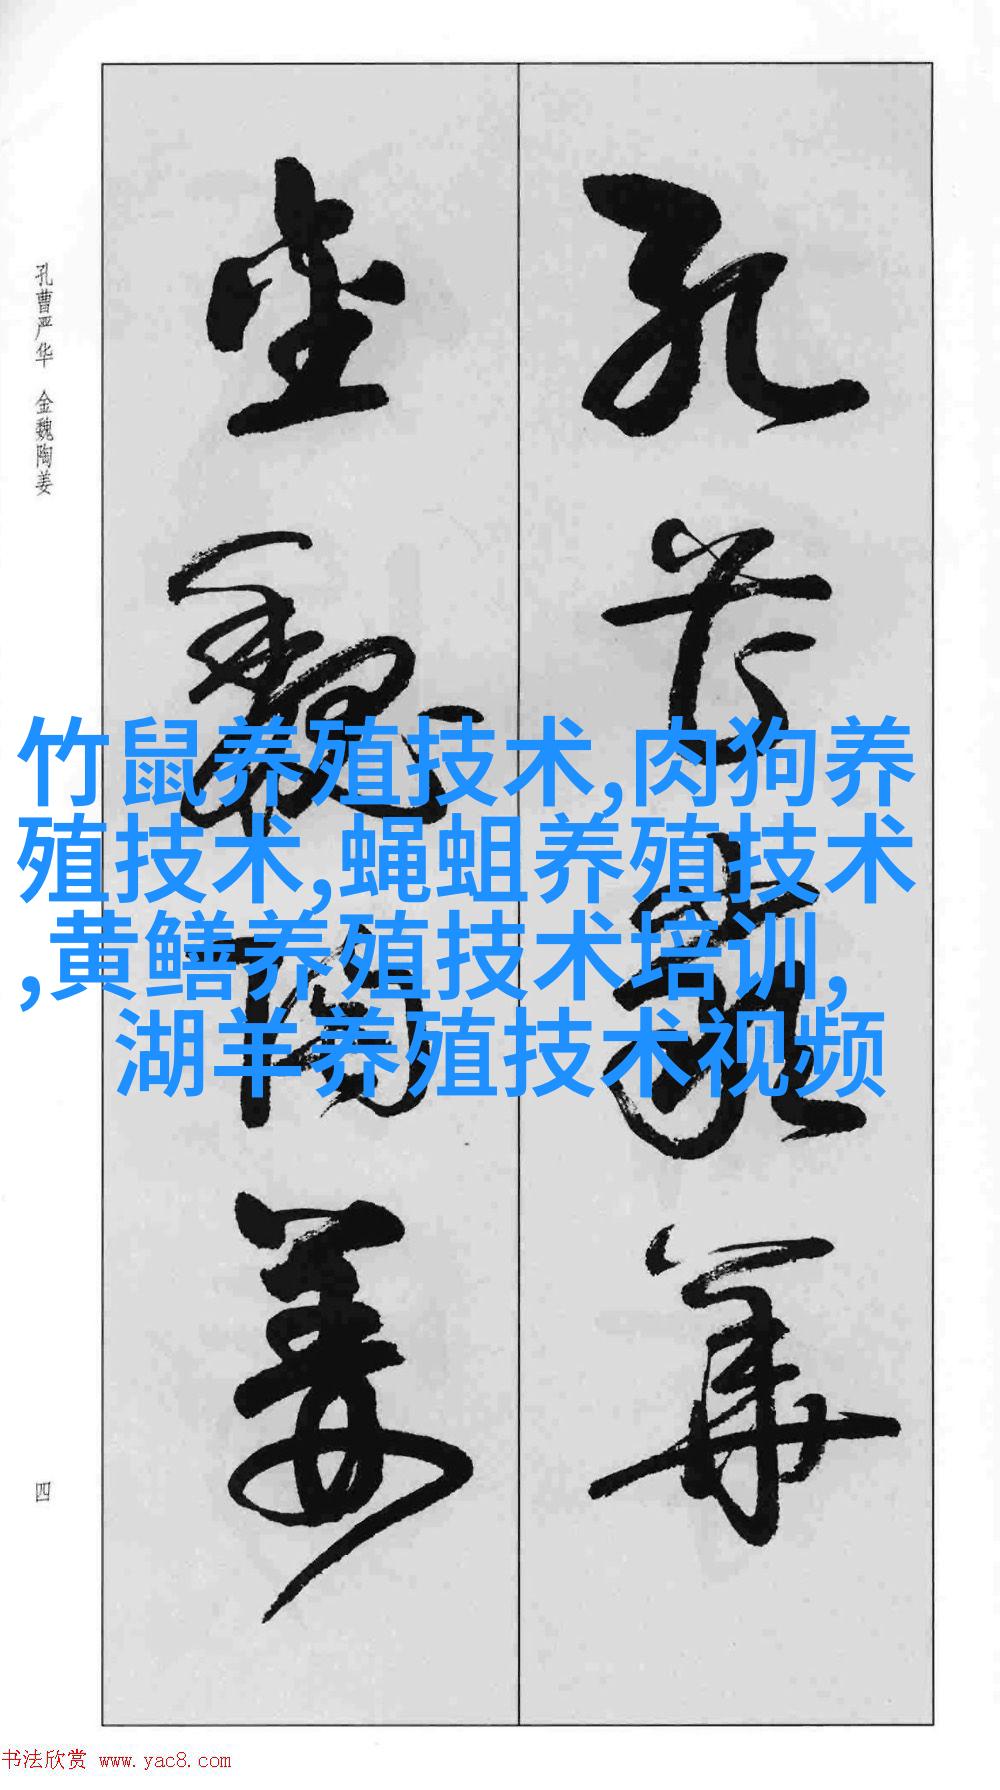 孔曹严华 金魏陶姜
孔曹严华
金魏陶姜
竹鼠养殖技术,肉狗养
殖技术,蝇蛆养殖技术
,黄鳝养殖技术培训,
湖羊养殖技术视频
四
书法欣赏 www.yac8.com